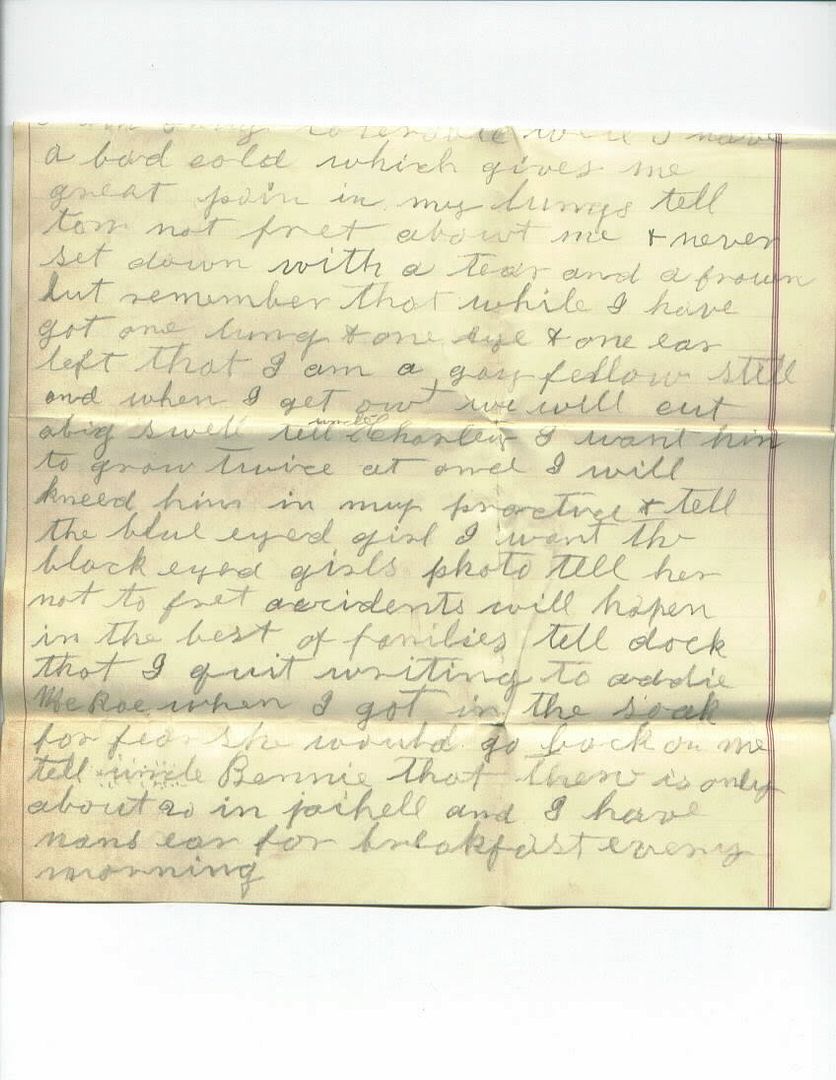 I am only tolerable well I have
a bad cold which gives me
great pain in my lungs tell
tom not fret about me & never
set down with a tear and a frown
but remember that while I have
got one lung & one eye & one ear
left that I am a gay fellow still
and when I get out we will cut
abig swell tell uncle Charley I want him
to grow twice at and I will
kneed him in my practice & tell
the blue eyed girl I want the
black eyed girls photo tell her
not to fret accidents will hapen
in the best of families tell dock
that I quit writing to addie
McRae when I got in the soak
for fear she would go back on me
tell uncle Bennie that there is only
about 20 in jaihell and I have
mans ear for breakfast every
morning